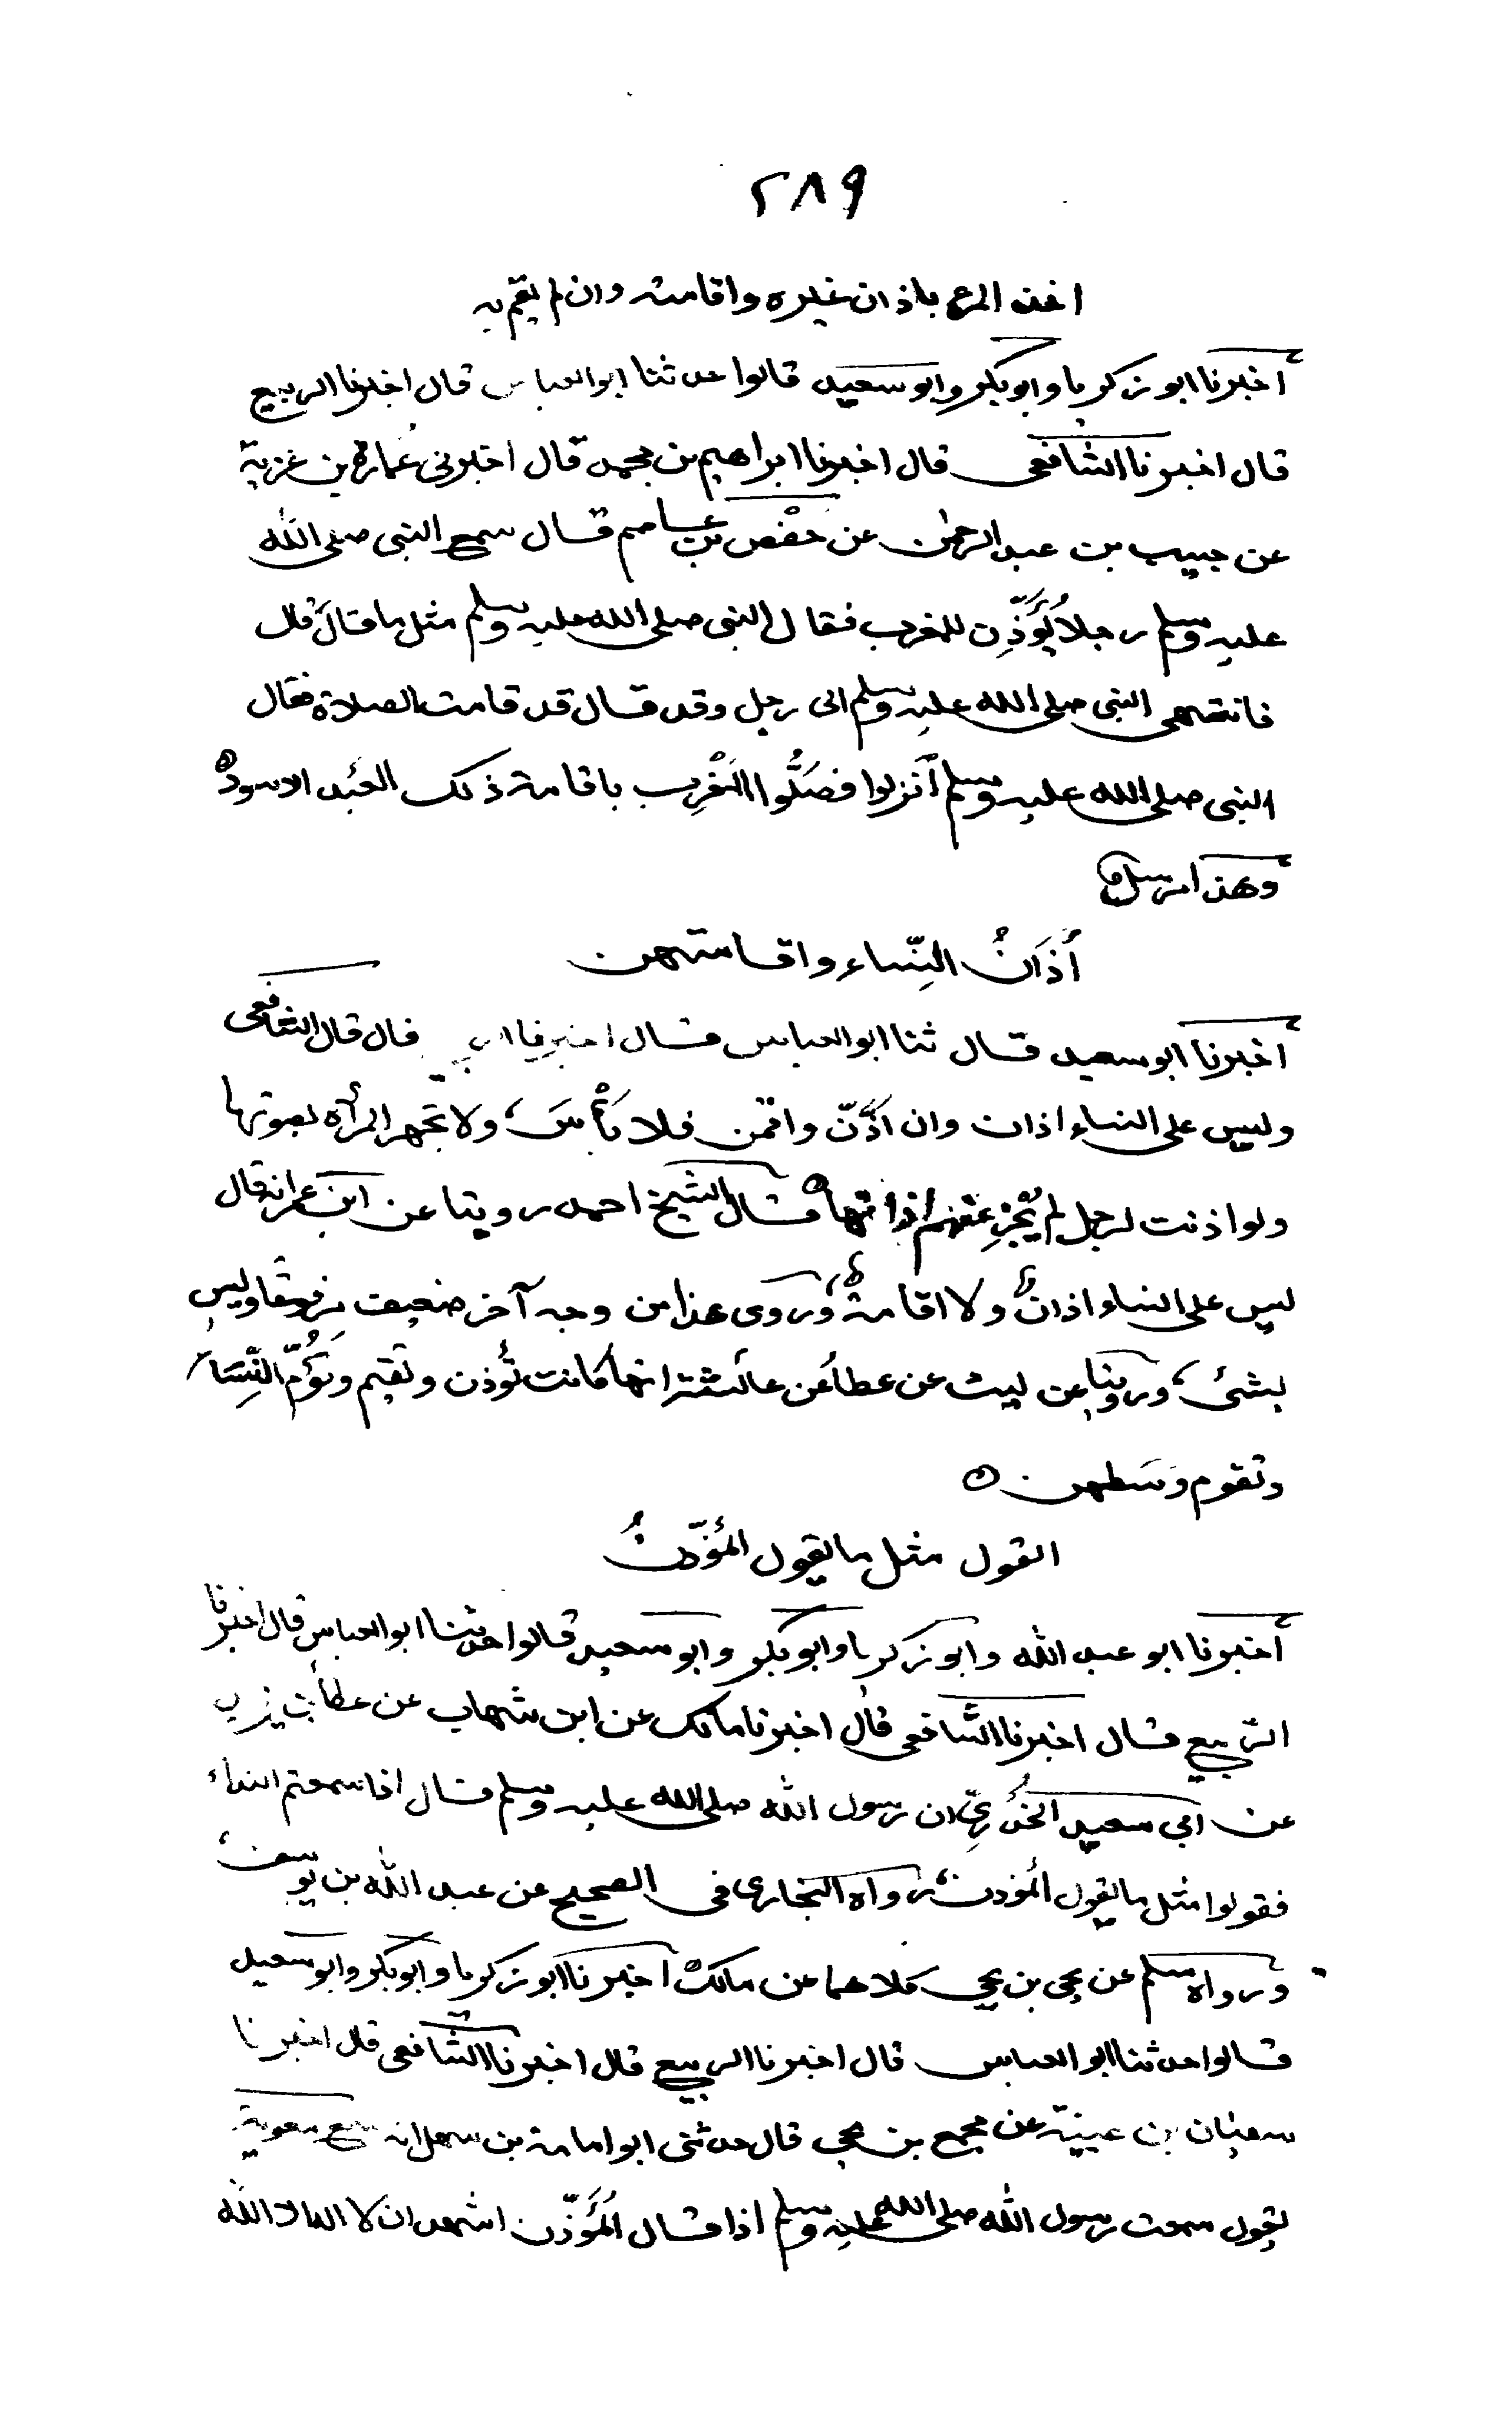 ٢٨٩
اخذ المرء باذان غيره واقامته وان لم يقم به
أخبرنا ابو زكريا وابو بكر وابو سعيد قالوا حدثنا ابو العباس قال اخبرنا الربيع
قال اخبرنا الشافعى قال اخبرنا ابراهيم بن محمد قال اخبرنى عمارة بن غزية
عن حبيب بن عبد الرحمن عن حفص بن عاصم قال سمع النبى صلى الله
عليه وسلم رجلا يُؤَذِّن للمغرب فقال النبى صلى الله عليه وسلم مثل ما قال قال
فانتهى النبى صلى الله عليه وسلم الى رجل وقد قال قد قامت الصلاة فقال
النبى صلى الله عليه وسلم أنزلوا فصَلُّوا المَغْرِب باقامة ذلك العَبْد الاسود ه
وهذا مرسل ه
أذَانُ النِّساء واقامتهن
أخبرنا ابو سعيد قال ثنا ابو العباس قال اخبرنا قال قال الشافعى
وليس على النساء اذان وان اذَّنّ واقمن فلا بَأْسَ، ولا تجهر المرأة بصوتها
ولو اذنت لرجل لم يُجْزِ عنهم اذانها ه قال الشيخ احمد روينا عن ابن عمر انه قال
ليس على النساء اذان ولا اقامة، وروى هذا من وجه آخر ضعيف مرفوعا وليس
بشئ، وروينا عن ليث عن عطاء عن عائشة انها كانت تُؤذن وتقيم وتَؤُمّ النِّسَاء
وتقوم وسَطهن ه
القول مثل ما يقول المُؤذّنُ
أخبرنا ابو عبد الله وابو زكريا وابو بكر وابو سعيد قالوا حدثنا ابو العباس قال اخبرنا
الرّبيع قال اخبرنا الشّافعى قال اخبرنا مالك عن ابن شهاب عن عطاء بن يزيد
عن ابي سعيد الخُدْرِيّ ان رسول الله صلى الله عليه وسلم قال اذا سمعتم النداء
فقولوا مثل ما يقول المُؤذن، رواه البخارى فى الصحيح عن عبد الله بن يوسف،
ورواه مسلم عن يحيى بن يحيى كلاهما عن مالك ه أخبرنا ابو زكريا وابو بكر وابو سعيد
قالوا حدثنا ابو العباس قال اخبرنا الربيع قال اخبرنا الشّافعى قال اخبرنا
سفيان بن عيينة عن مجمع بن يحيى قال حدثنى ابو امامة بن سهل انه سمع معوية
يقول سمعت رسول الله صلى الله عليه وسلم اذا قال المُؤَذّن اشهد ان لا اله الا الله